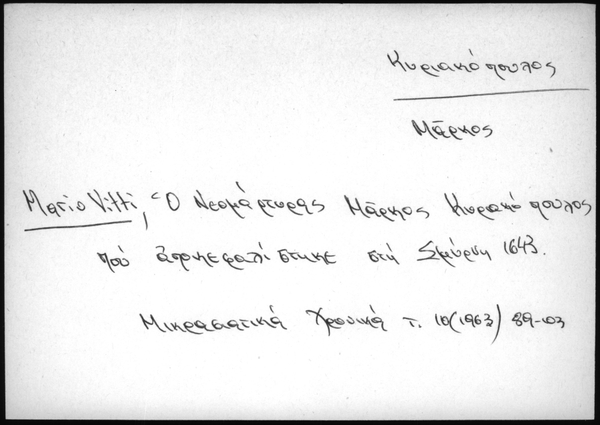 Κυριακόπουλος
Μάρκος
Mario Vitti, Ὁ Νεομάρτυρας Μάρκος Κυριακόπουλος
πού ἀποκεφαλίστηκε στή Σμύρνη 1643.
Μικρασιατικά Χρονικά τ. 10(1963) 89-103